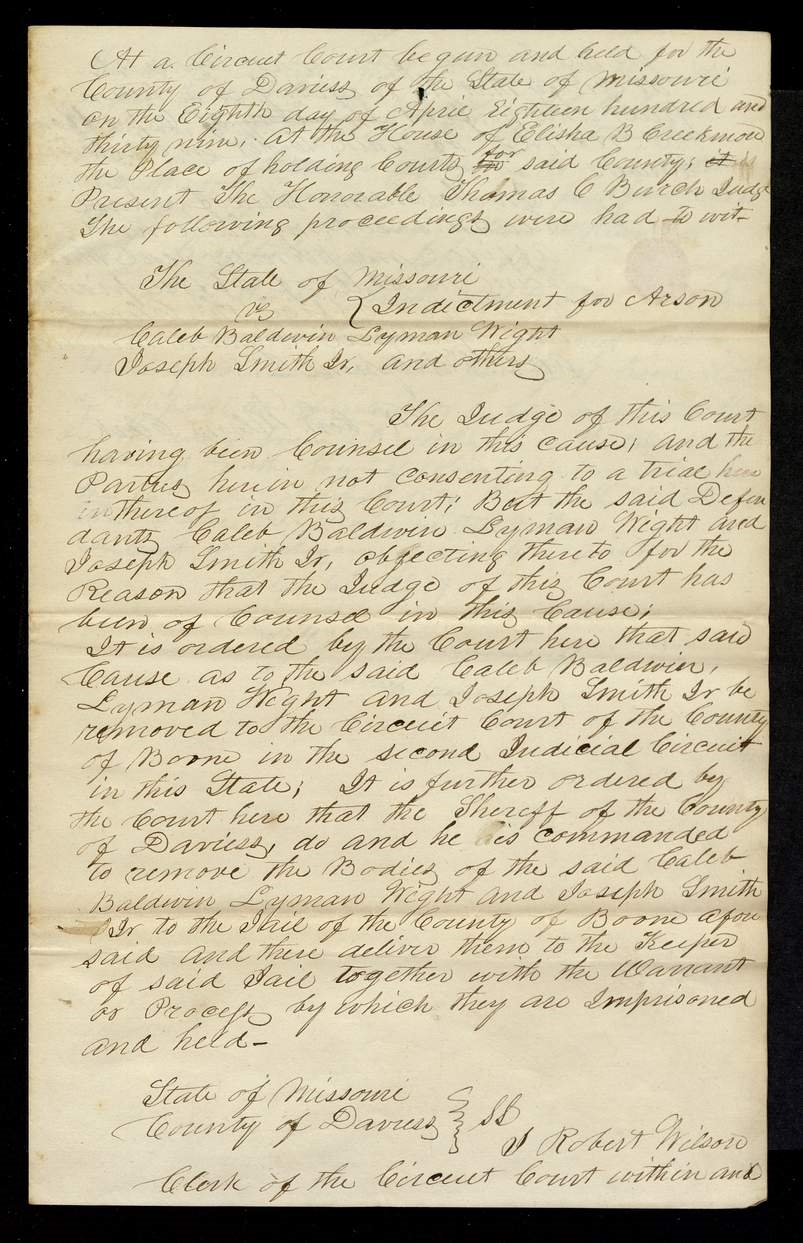 At a Circuit Court begun and held for the
County of Daviess of the State of Missouri
on the Eighth day of April Eighteen hundred and
thirty nine, At the House of Elisha B Creekmore
the Place of holding Courts for said County;
Present The Honorable Thomas C Burch Judge
The following proceedings were had to wit-
The State of Missouri
vs { Indictment for Arson
Caleb Baldwin Lyman Wight
Joseph Smith Jr, and others
The Judge of this Court
having been Counsel in this cause, and the
Parties herein not consenting to a trial here
in thereof in this Court; But the said Defen
dants Caleb Baldwin Lyman Wight and
Joseph Smith Jr, objecting thereto for the
Reason that the Judge of this Court has
been of Counsel in this Cause;
It is ordered by the Court here that said
Cause as to the said Caleb Baldwin,
Lyman Wight and Joseph Smith Jr be
removed to the Circuit Court of the County
of Boone in the second Judicial Circuit
in this State; It is further ordered by
the Court here that the Shereff of the County
of Daviess, do and he is commanded
to remove the Bodies of the said Caleb
Baldwin Lyman Wight and Joseph Smith
Jr to the Jail of the County of Boone afore
said and there deliver them to the Keeper
of said Jail together with the Warrant
or Process by which they are Imprisoned
and held-
State of Missouri
County of Daviess } SS
I Robert Wilson
Clerk of the Circuit Court within and